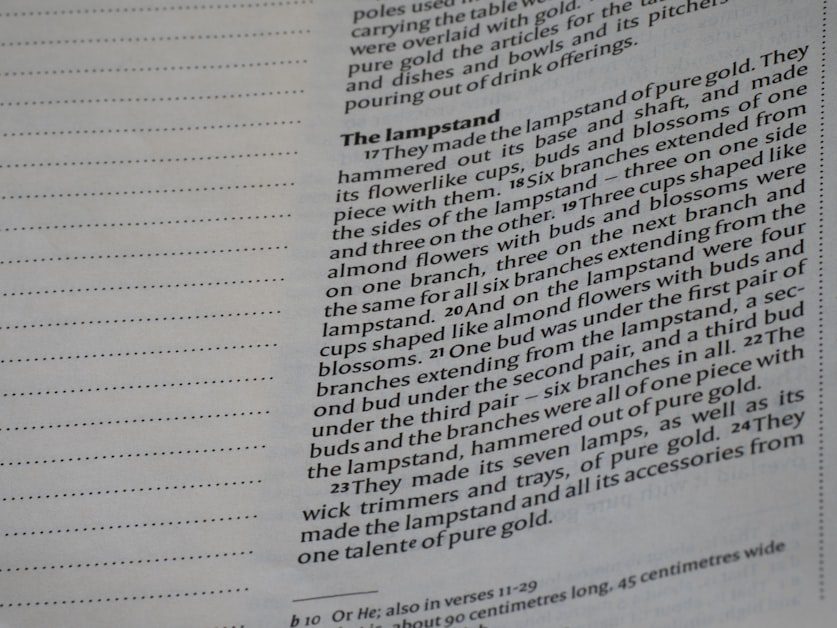 poles used
carrying the table
were overlaid with gold.
pure gold the articles for the
and dishes and bowls and its pitchers
pouring out of drink offerings.
The lampstand
17 They made the lampstand of pure gold. They
hammered out its base and shaft, and made
its flowerlike cups, buds and blossoms of one
piece with them. 18 Six branches extended from
the sides of the lampstand – three on one side
and three on the other. 19 Three cups shaped like
almond flowers with buds and blossoms were
on one branch, three on the next branch and
the same for all six branches extending from the
lampstand. 20 And on the lampstand were four
cups shaped like almond flowers with buds and
blossoms. 21 One bud was under the first pair of
branches extending from the lampstand, a sec-
ond bud under the second pair, and a third bud
under the third pair – six branches in all. 22 The
buds and the branches were all of one piece with
the lampstand, hammered out of pure gold.
23 They made its seven lamps, as well as its
wick trimmers and trays, of pure gold. 24 They
made the lampstand and all its accessories from
one talent e of pure gold.
b 10 Or He; also in verses 11-29
about 90 centimetres long, 45 centimetres wide